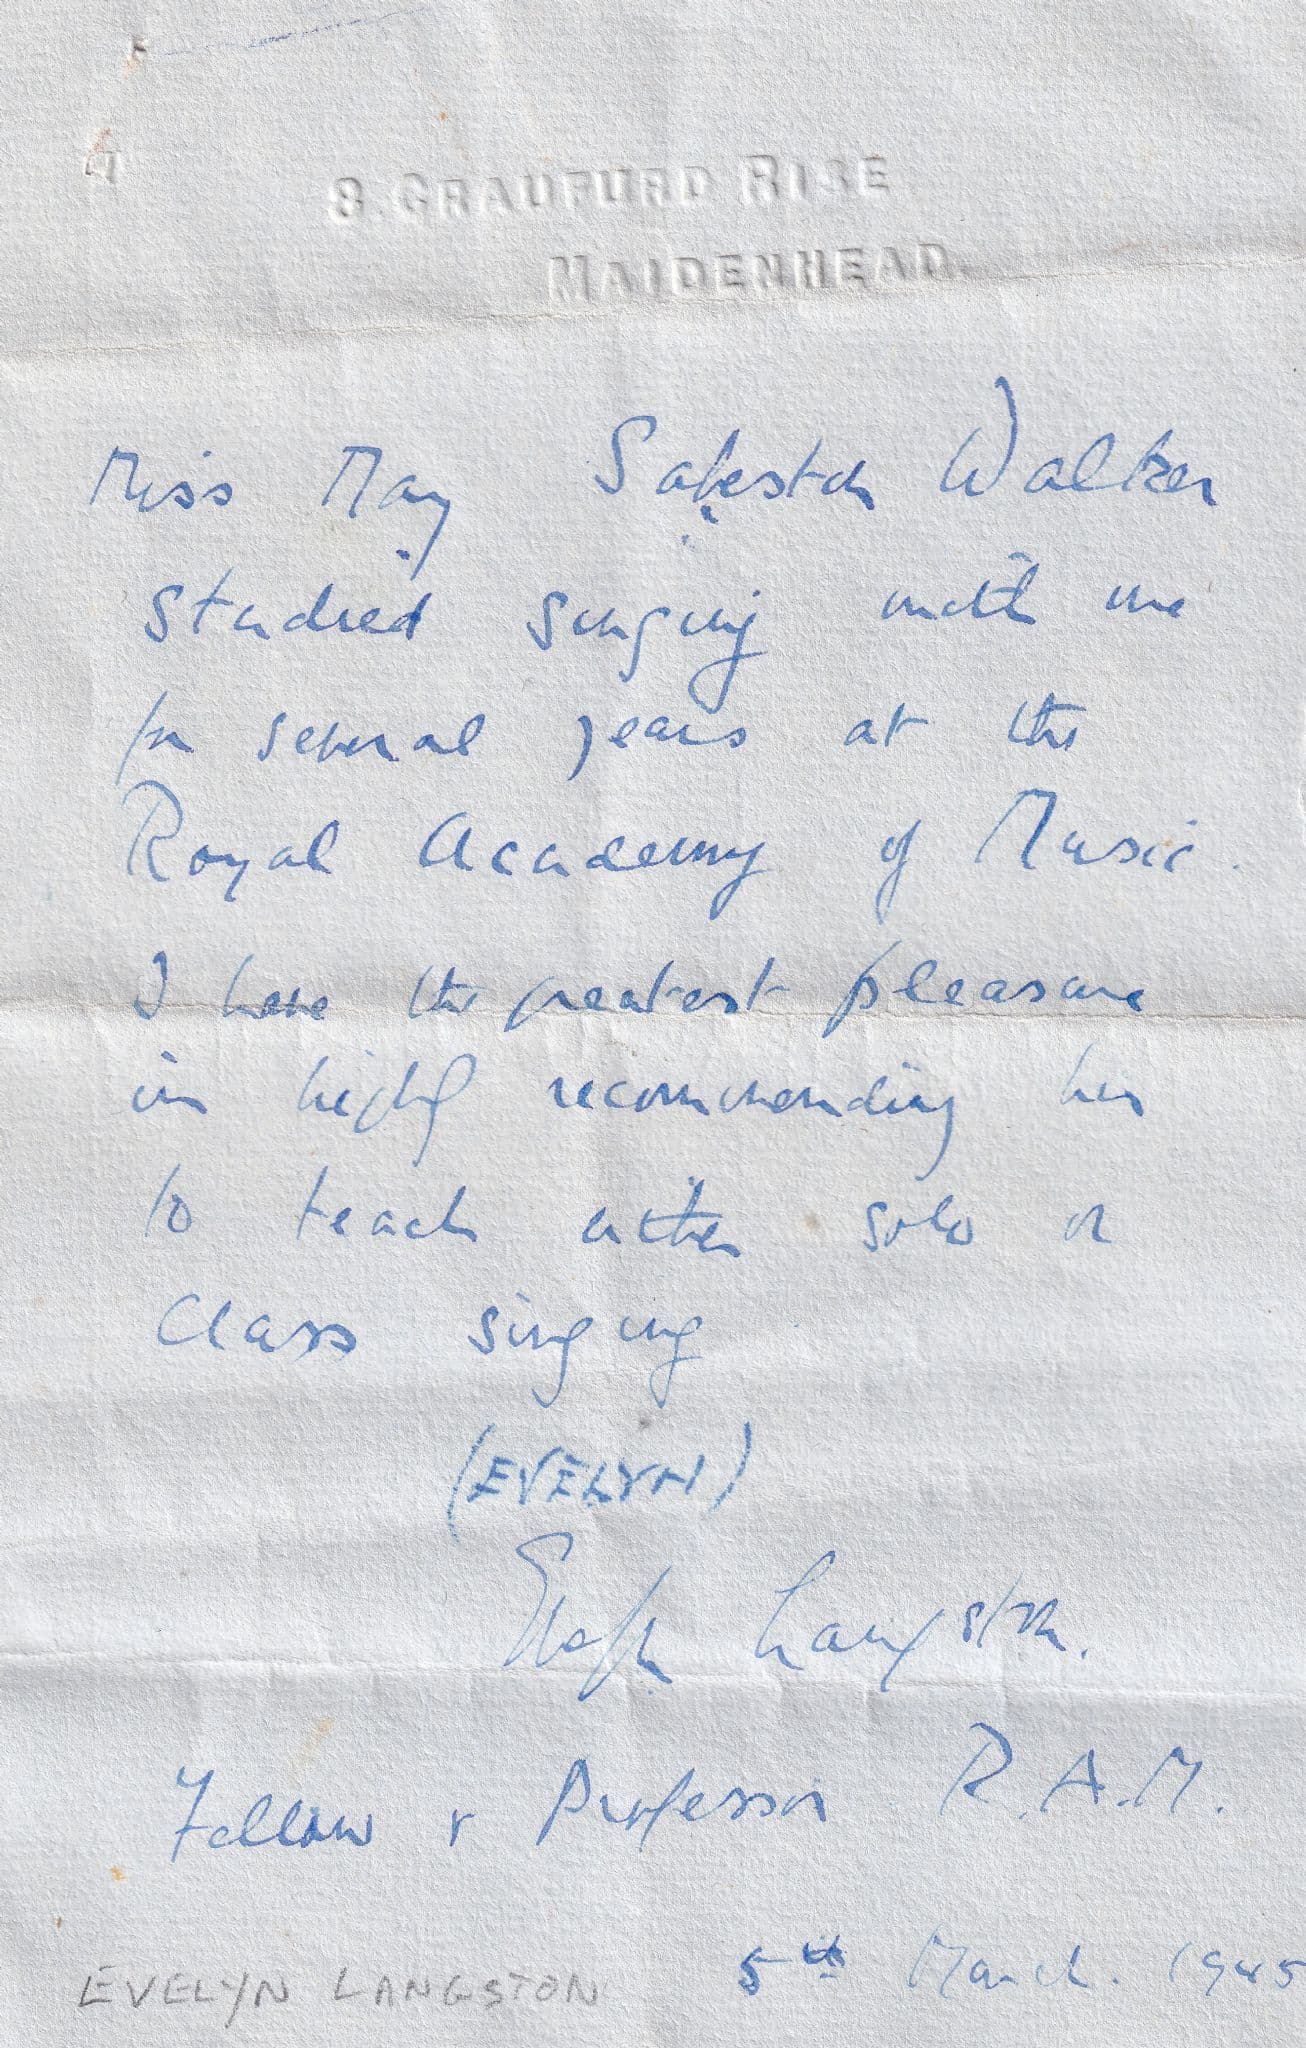 8. CRAUFURD RISE
MAIDENHEAD.
Miss May Walker
studied singing with me
for several years at the
Royal Academy of Music.
I have the greatest pleasure
in highly recommending her
to teach either solo or
Class singing
(EVELYN)
Langston.
Fellow & Professor R.A.M.
5th March. 1945
EVELYN LANGSTON